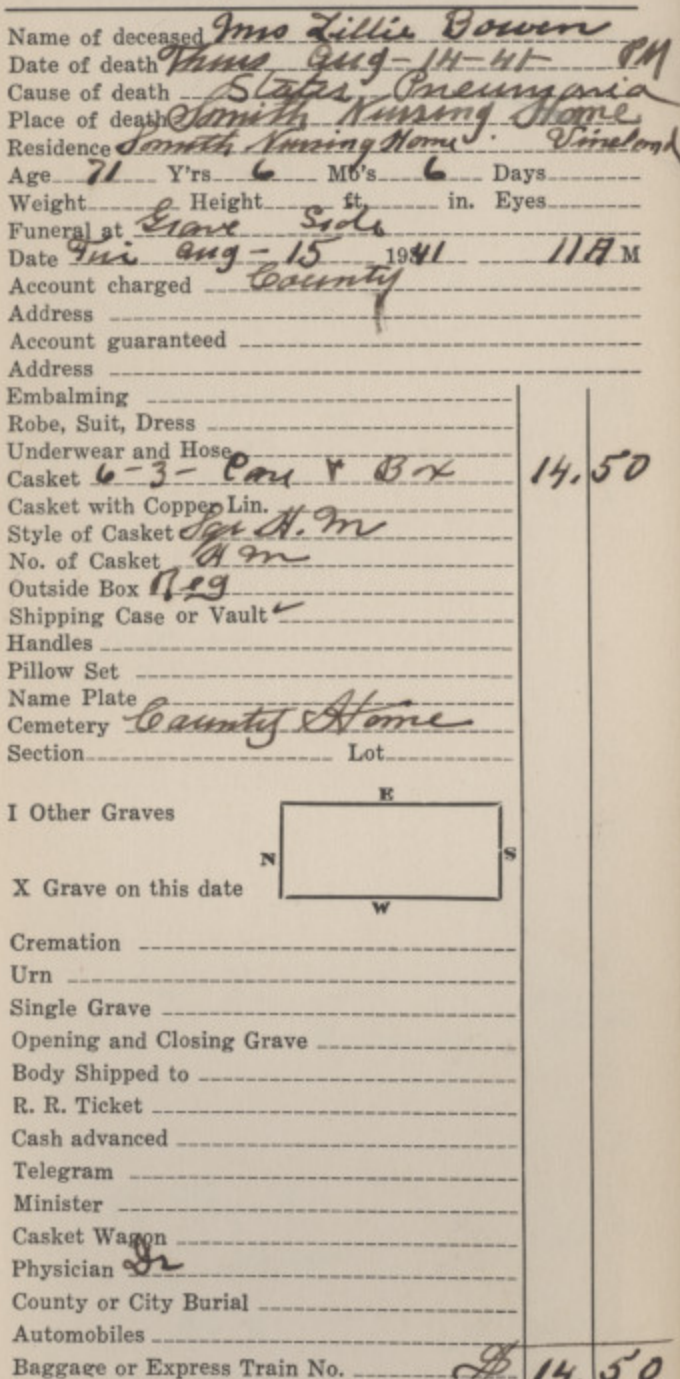 Name of deceased Mrs Lillie Bowen
Date of death Thurs Aug-14-41 PM
Cause of death States. Pneumonia
Place of death Smith Nursing Home
Residence Smith Nursing Home. Vineland
Age 71 Y'rs 6 Mo's 6 Days
Weight Height ft. in. Eyes
Funeral at Grave Side
Date Fri Aug-15 1941 11 A M
Account charged County
Address
Account guaranteed
Address
Embalming
Robe, Suit, Dress
Underwear and Hose
Casket 6-3- & Box 14.50
Casket with Copper Lin.
Style of Casket Sqr H.M
No. of Casket H M
Outside Box Reg
Shipping Case or Vault ✓
Handles
Pillow Set
Name Plate
Cemetery County Home
Section Lot
E
I Other Graves
N S
X Grave on this date
W
Cremation
Urn
Single Grave
Opening and Closing Grave
Body Shipped to
R. R. Ticket
Cash advanced
Telegram
Minister
Casket Wagon
Physician Dr
County or City Burial
Automobiles
Baggage or Express Train No. $ 14 50